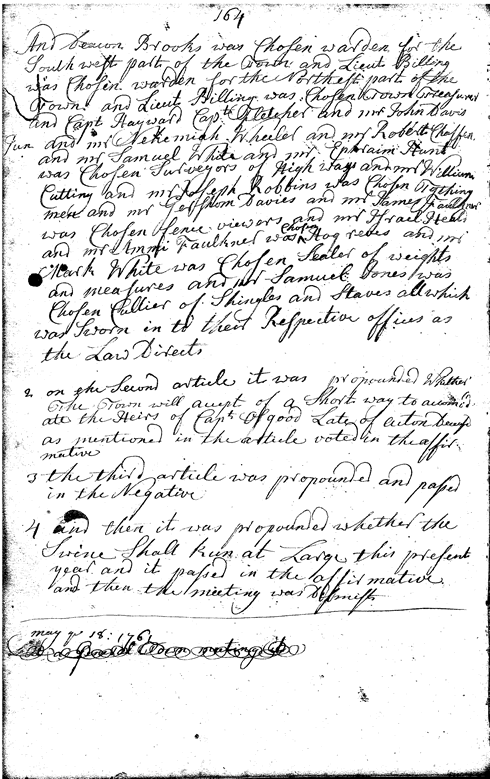 164
And Deacon Brooks was Chosen warden for the
South west part of the Town and Lieut Billing
was Chosen warden for the Northest part of the
Town and Lieut Billing was Chosen Town Treasurer
and Capt Hayward Capt Fletcher and mr John Davis
Jun and mr Nehemiah Wheeler and mr Robert Chaffen
and mr Samuel White and mr Ephraim Hunt
was Chosen Surveyors of High ways and mr William
Cutting and mr Joseph Robbins was Chosen Tything
men and mr Gershom Davies and mr James Faulkner
was Chosen Fence viewers and mr Israel Heald
and mr Ammi Faulkner was Chosen Hog reves and mr
Mark White was Chosen Sealer of weights
and measures and mr Samuel Jones was
Chosen Cullier of Shingles and Staves all which
was Sworn in to their Respective offices as
the Law Directs
2 on the Second article it was propounded Whether
The Town will accept of a Short way to accomod
ate the Heirs of Capt Osgood Late of acton
as mentioned in the article voted in the affir
mative
3 the third article was propounded and passed
in the Negative
4 and then it was propounded whether the
Swine Shall Run at Large this present
year and it passed in the affirmative
and then the meeting was Dismist
may ye 18: 1761
Town meeting